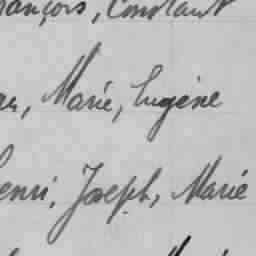 rançois, Constant
an, Marie, Eugène
Henri, Joseph, Marie